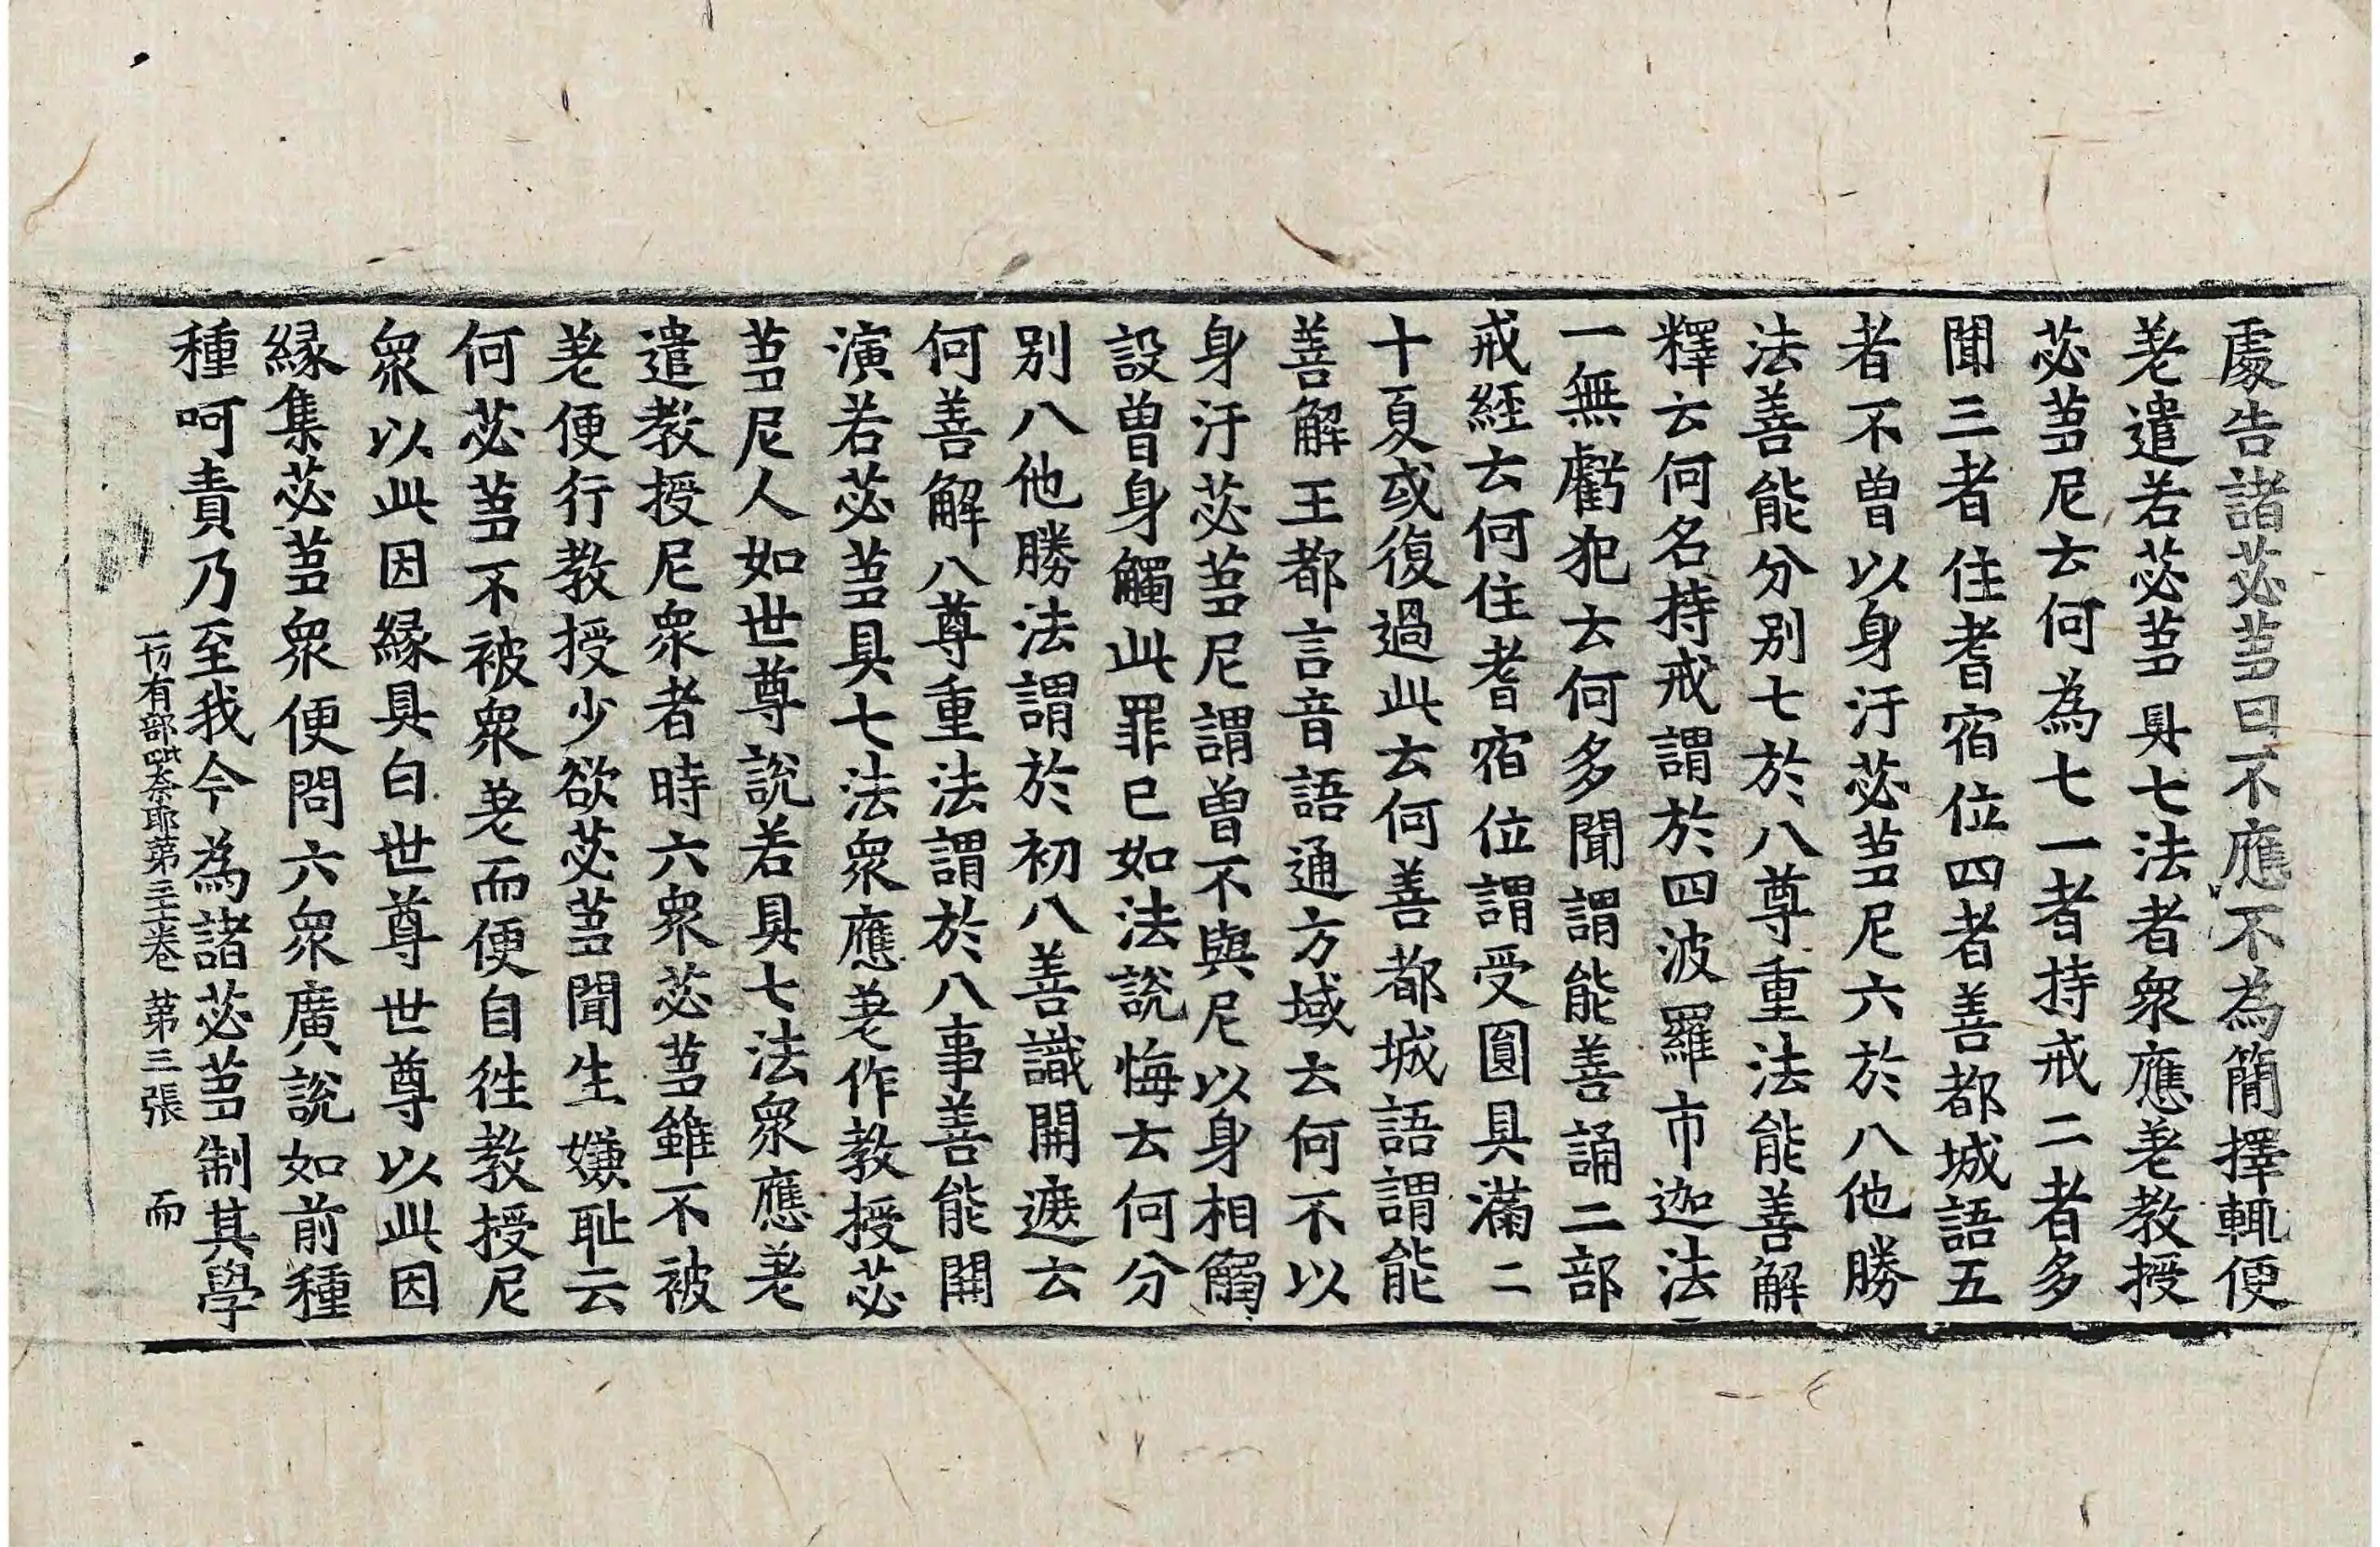 處告諸苾芻曰不應不為簡擇輒便
差遣若苾芻具七法者衆應差教授
苾芻尼云何為七一者持戒二者多
聞三者住耆宿位四者善都城語五
者不曾以身汙苾芻尼六於八他勝
法善能分別七於八尊重法能善解
釋云何名持戒謂於四波羅市迦法
一無虧犯云何多聞謂能善誦二部
戒經云何住耆宿位謂受圓具滿二
十夏或復過此云何善都城語謂能
善解王都言音語通方域云何不以
身汙苾芻尼謂曾不與尼以身相觸
設曾身觸此罪已如法說悔云何分
別八他勝法謂於初八善識開遮云
何善解八尊重法謂於八事善能開
演若苾芻具七法衆應差作教授苾
芻尼人如世尊說若具七法衆應差
遣教授尼衆者時六衆苾芻雖不被
差便行教授少欲苾芻聞生嫌恥云
何苾芻不被衆差而便自徃教授尼
衆以此因縁具白世尊世尊以此因
縁集苾芻衆便問六衆廣說如前種
種呵責乃至我今為諸苾芻制其學
一切有部毗奈耶第三十一卷 第三張 而